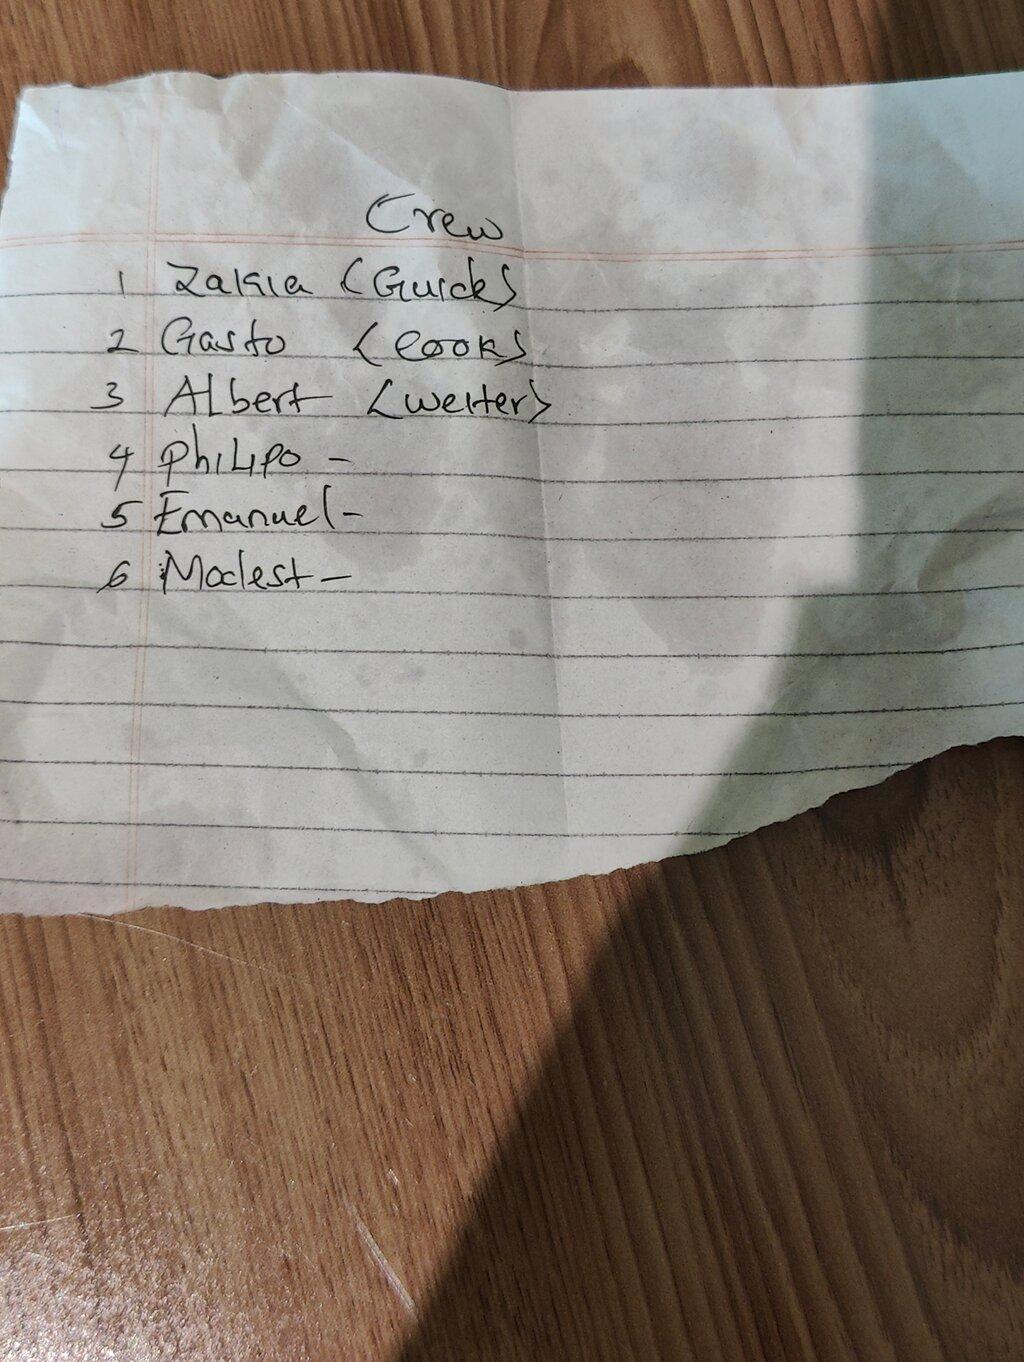 Crew
1 Zakia (Guide)
2 Gasto (cook)
3 Albert (weiter)
4 Philipo -
5 Emanuel -
6 Modest -